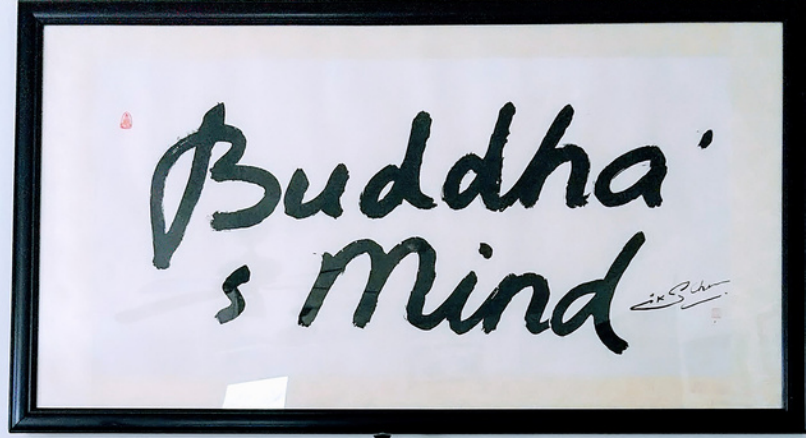 Buddha'
s Mind